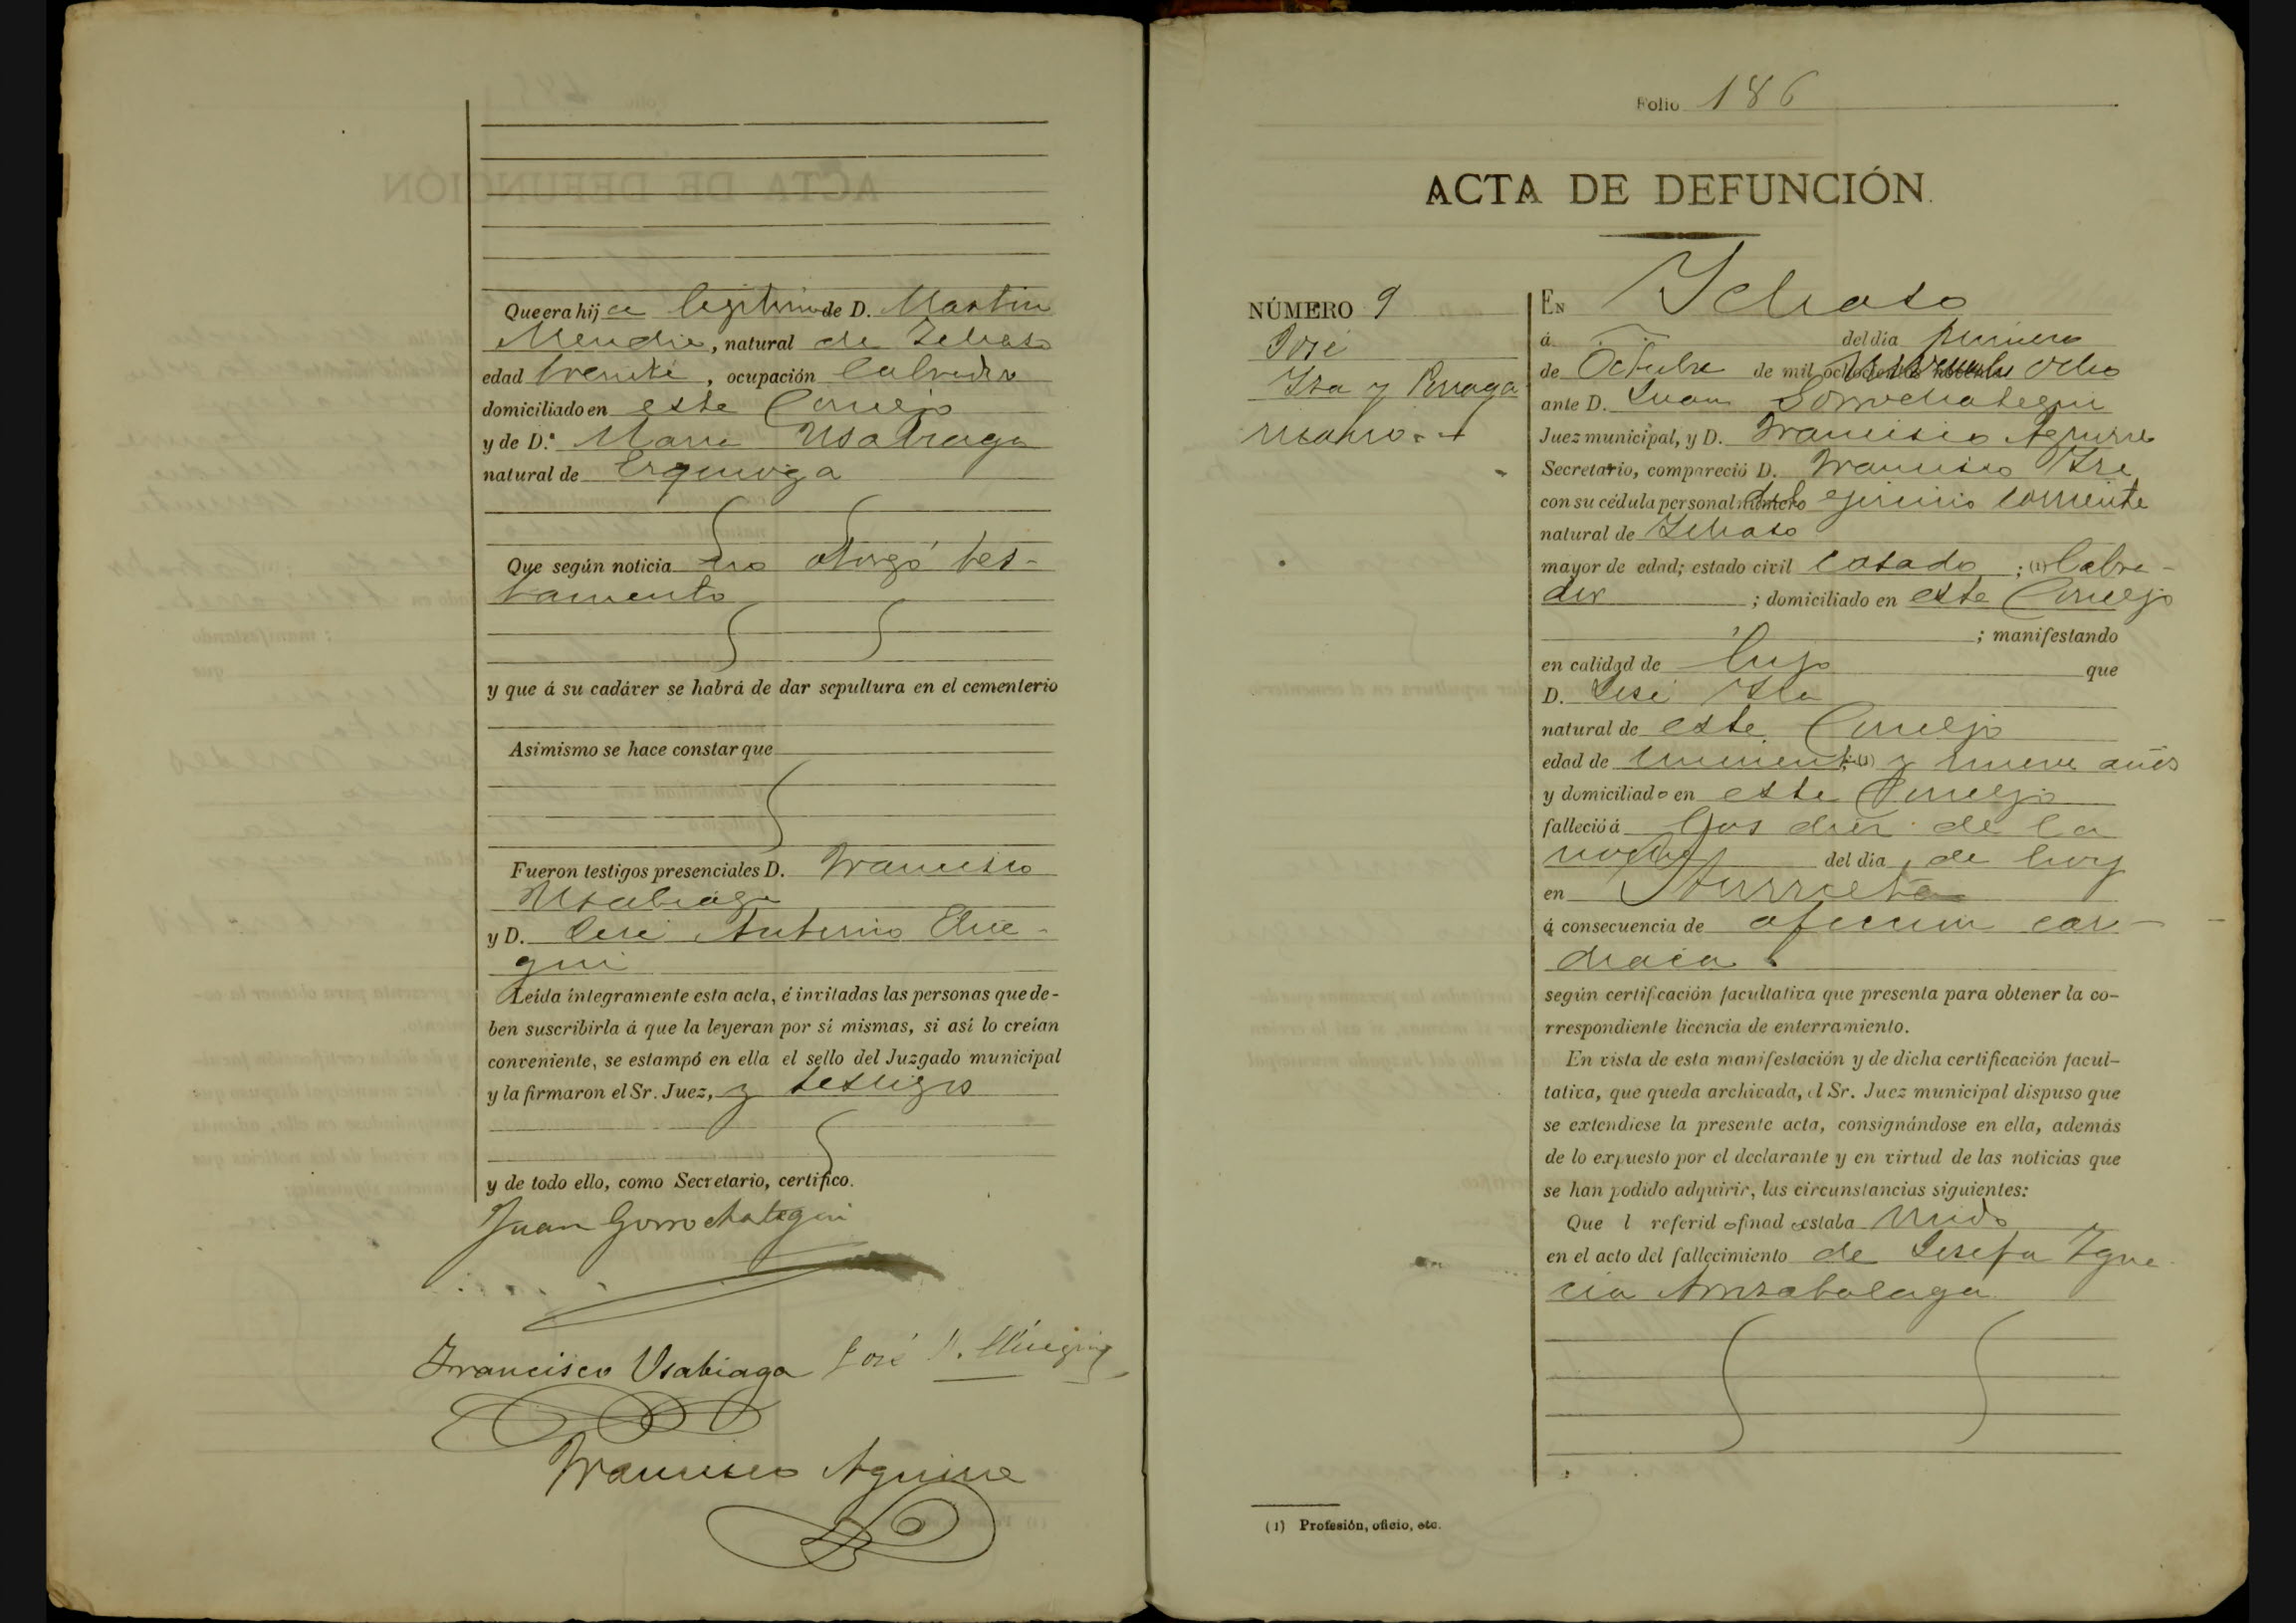 Que era hija legitima de D. Martin
Mendia, natural de Ichaso
edad treinta, ocupación labrador
domiciliado en este Concejo
y de D.ª Maria Usabiaga
natural de Ezquioga
Que según noticia no otorgó tes-
tamento
y que á su cadáver se habrá de dar sepultura en el cementerio
Asimismo se hace constar que
Fueron testigos presenciales D. Francisco
Usabiaga
y D. José Antonio
Leída íntegramente esta acta, é invitadas las personas que de-
ben suscribirla á que la leyeran por sí mismas, si así lo creían
conveniente, se estampó en ella el sello del Juzgado municipal
y la firmaron el Sr. Juez, y testigos
y de todo ello, como Secretario, certifico.
Juan Gorrochategui
Francisco Usabiaga José A.
Francisco Aguirre
Folio 186
ACTA DE DEFUNCIÓN.
NÚMERO 9
José
Isa y
En Ichaso
á del dia primero
de Octubre de mil ochocientos noventa ocho
ante D. Juan Gorrochategui
Juez municipal, y D. Francisco Aguirre
Secretario, compareció D. Francisco
con su cédula personal número ejercicio corriente
natural de Ichaso
mayor de edad; estado civil casado ; (1) labra-
dor ; domiciliado en este Concejo
; manifestando
en calidad de hijo que
D. José Isa
natural de este Concejo
edad de (1) y nueve años
y domiciliado en este Concejo
falleció á las diez de la
noche del dia de hoy
en Iturrieta
á consecuencia de afeccion car-
diaca
según certificación facultativa que presenta para obtener la co-
rrespondiente licencia de enterramiento.
En vista de esta manifestación y de dicha certificación facul-
tativa, que queda archivada, el Sr. Juez municipal dispuso que
se extendiese la presente acta, consignándose en ella, además
de lo expuesto por el declarante y en virtud de las noticias que
se han podido adquirir, las circunstancias siguientes:
Que l referido finado estaba viudo
en el acto del fallecimiento de Josefa Igna
cia
(1) Profesión, oficio, etc.